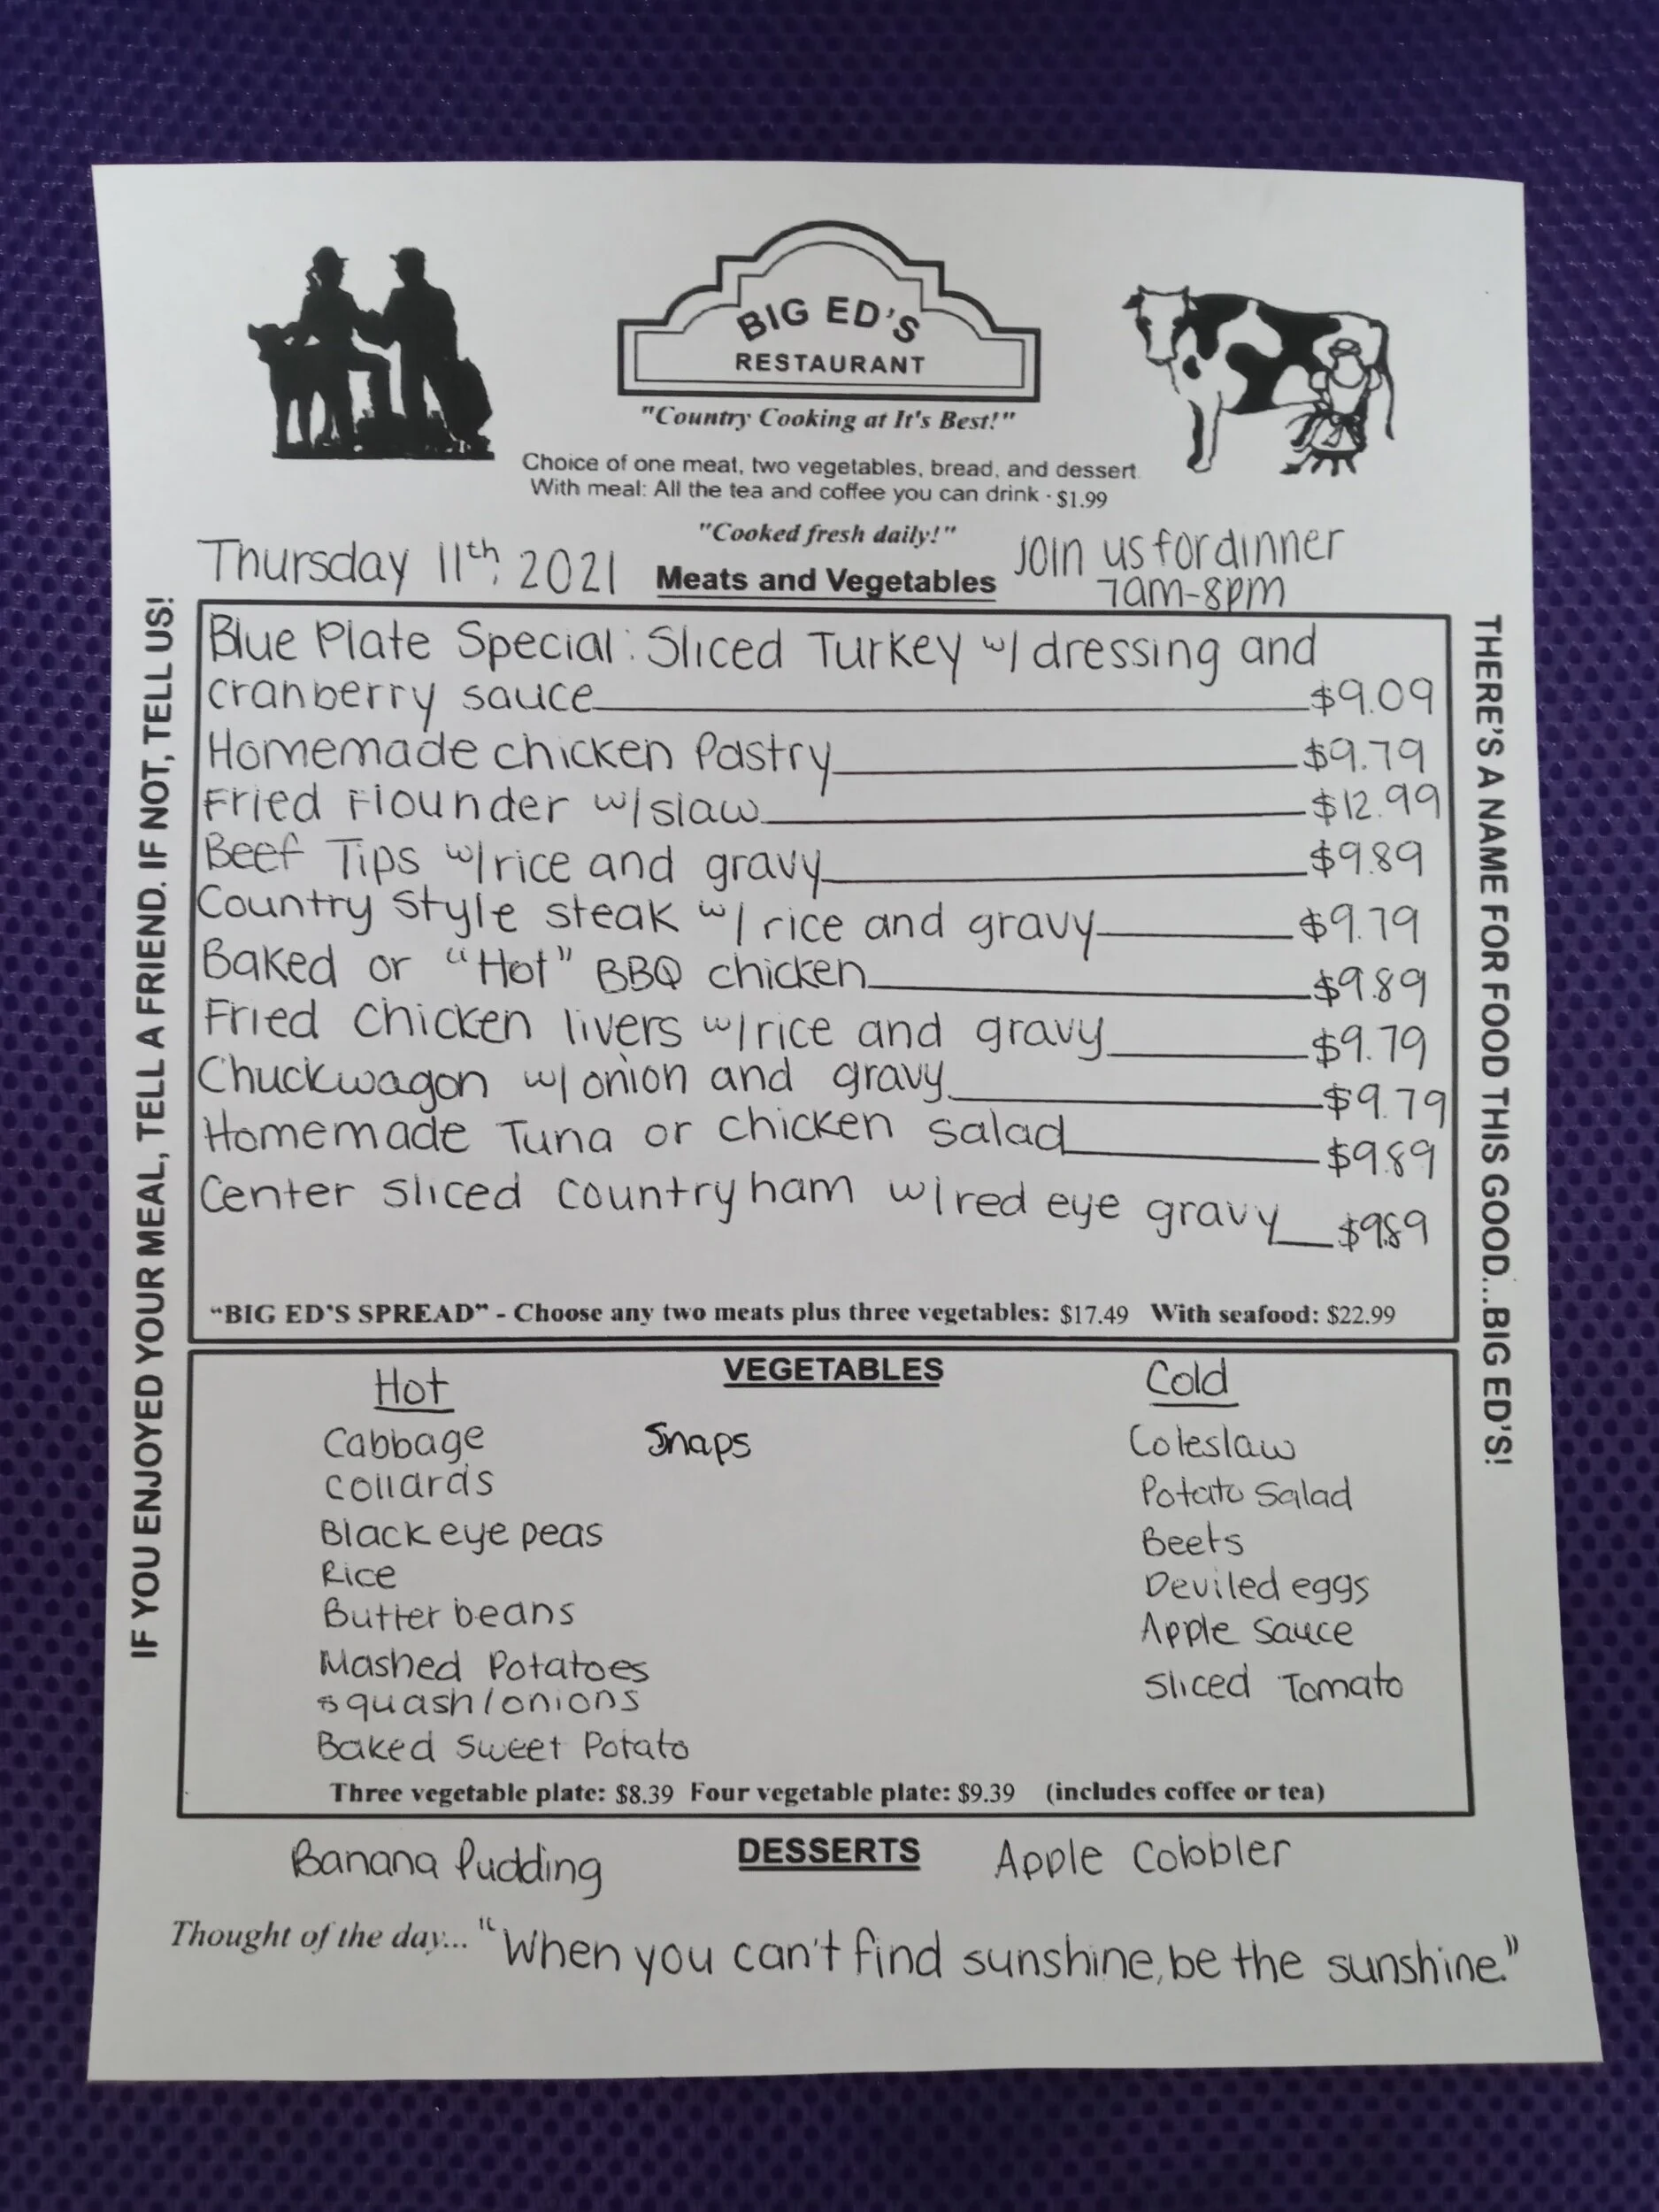 BIG ED'S
RESTAURANT
"Country Cooking at It's Best!"
Choice of one meat, two vegetables, bread, and dessert
With meal: All the tea and coffee you can drink · $1.99
"Cooked fresh daily!"
Thursday 11th, 2021
Meats and Vegetables
Join us for dinner
7am-8pm
IF YOU ENJOYED YOUR MEAL, TELL A FRIEND. IF NOT, TELL US!
Blue Plate Special: Sliced Turkey w/ dressing and
cranberry sauce $9.09
Homemade chicken Pastry $9.79
Fried Flounder w/slaw $12.99
Beef Tips w/rice and gravy $9.89
Country Style steak w/ rice and gravy $9.79
Baked or "Hot" BBQ chicken $9.89
Fried chicken livers w/rice and gravy $9.79
Chuckwagon w/onion and gravy $9.79
Homemade Tuna or chicken salad $9.89
Center sliced country ham w/red eye gravy $9.89
"BIG ED'S SPREAD" - Choose any two meats plus three vegetables: $17.49 With seafood: $22.99
THERE'S A NAME FOR FOOD THIS GOOD...BIG ED'S!
VEGETABLES
Hot
Cabbage
collards
Black eye peas
Rice
Butter beans
Mashed Potatoes
squash/onions
Baked Sweet Potato
Snaps
Cold
Coleslaw
Potato Salad
Beets
Deviled eggs
Apple Sauce
Sliced Tomato
Three vegetable plate: $8.39 Four vegetable plate: $9.39 (includes coffee or tea)
DESSERTS
Banana Pudding
Apple Cobbler
Thought of the day... "When you can't find sunshine, be the sunshine."